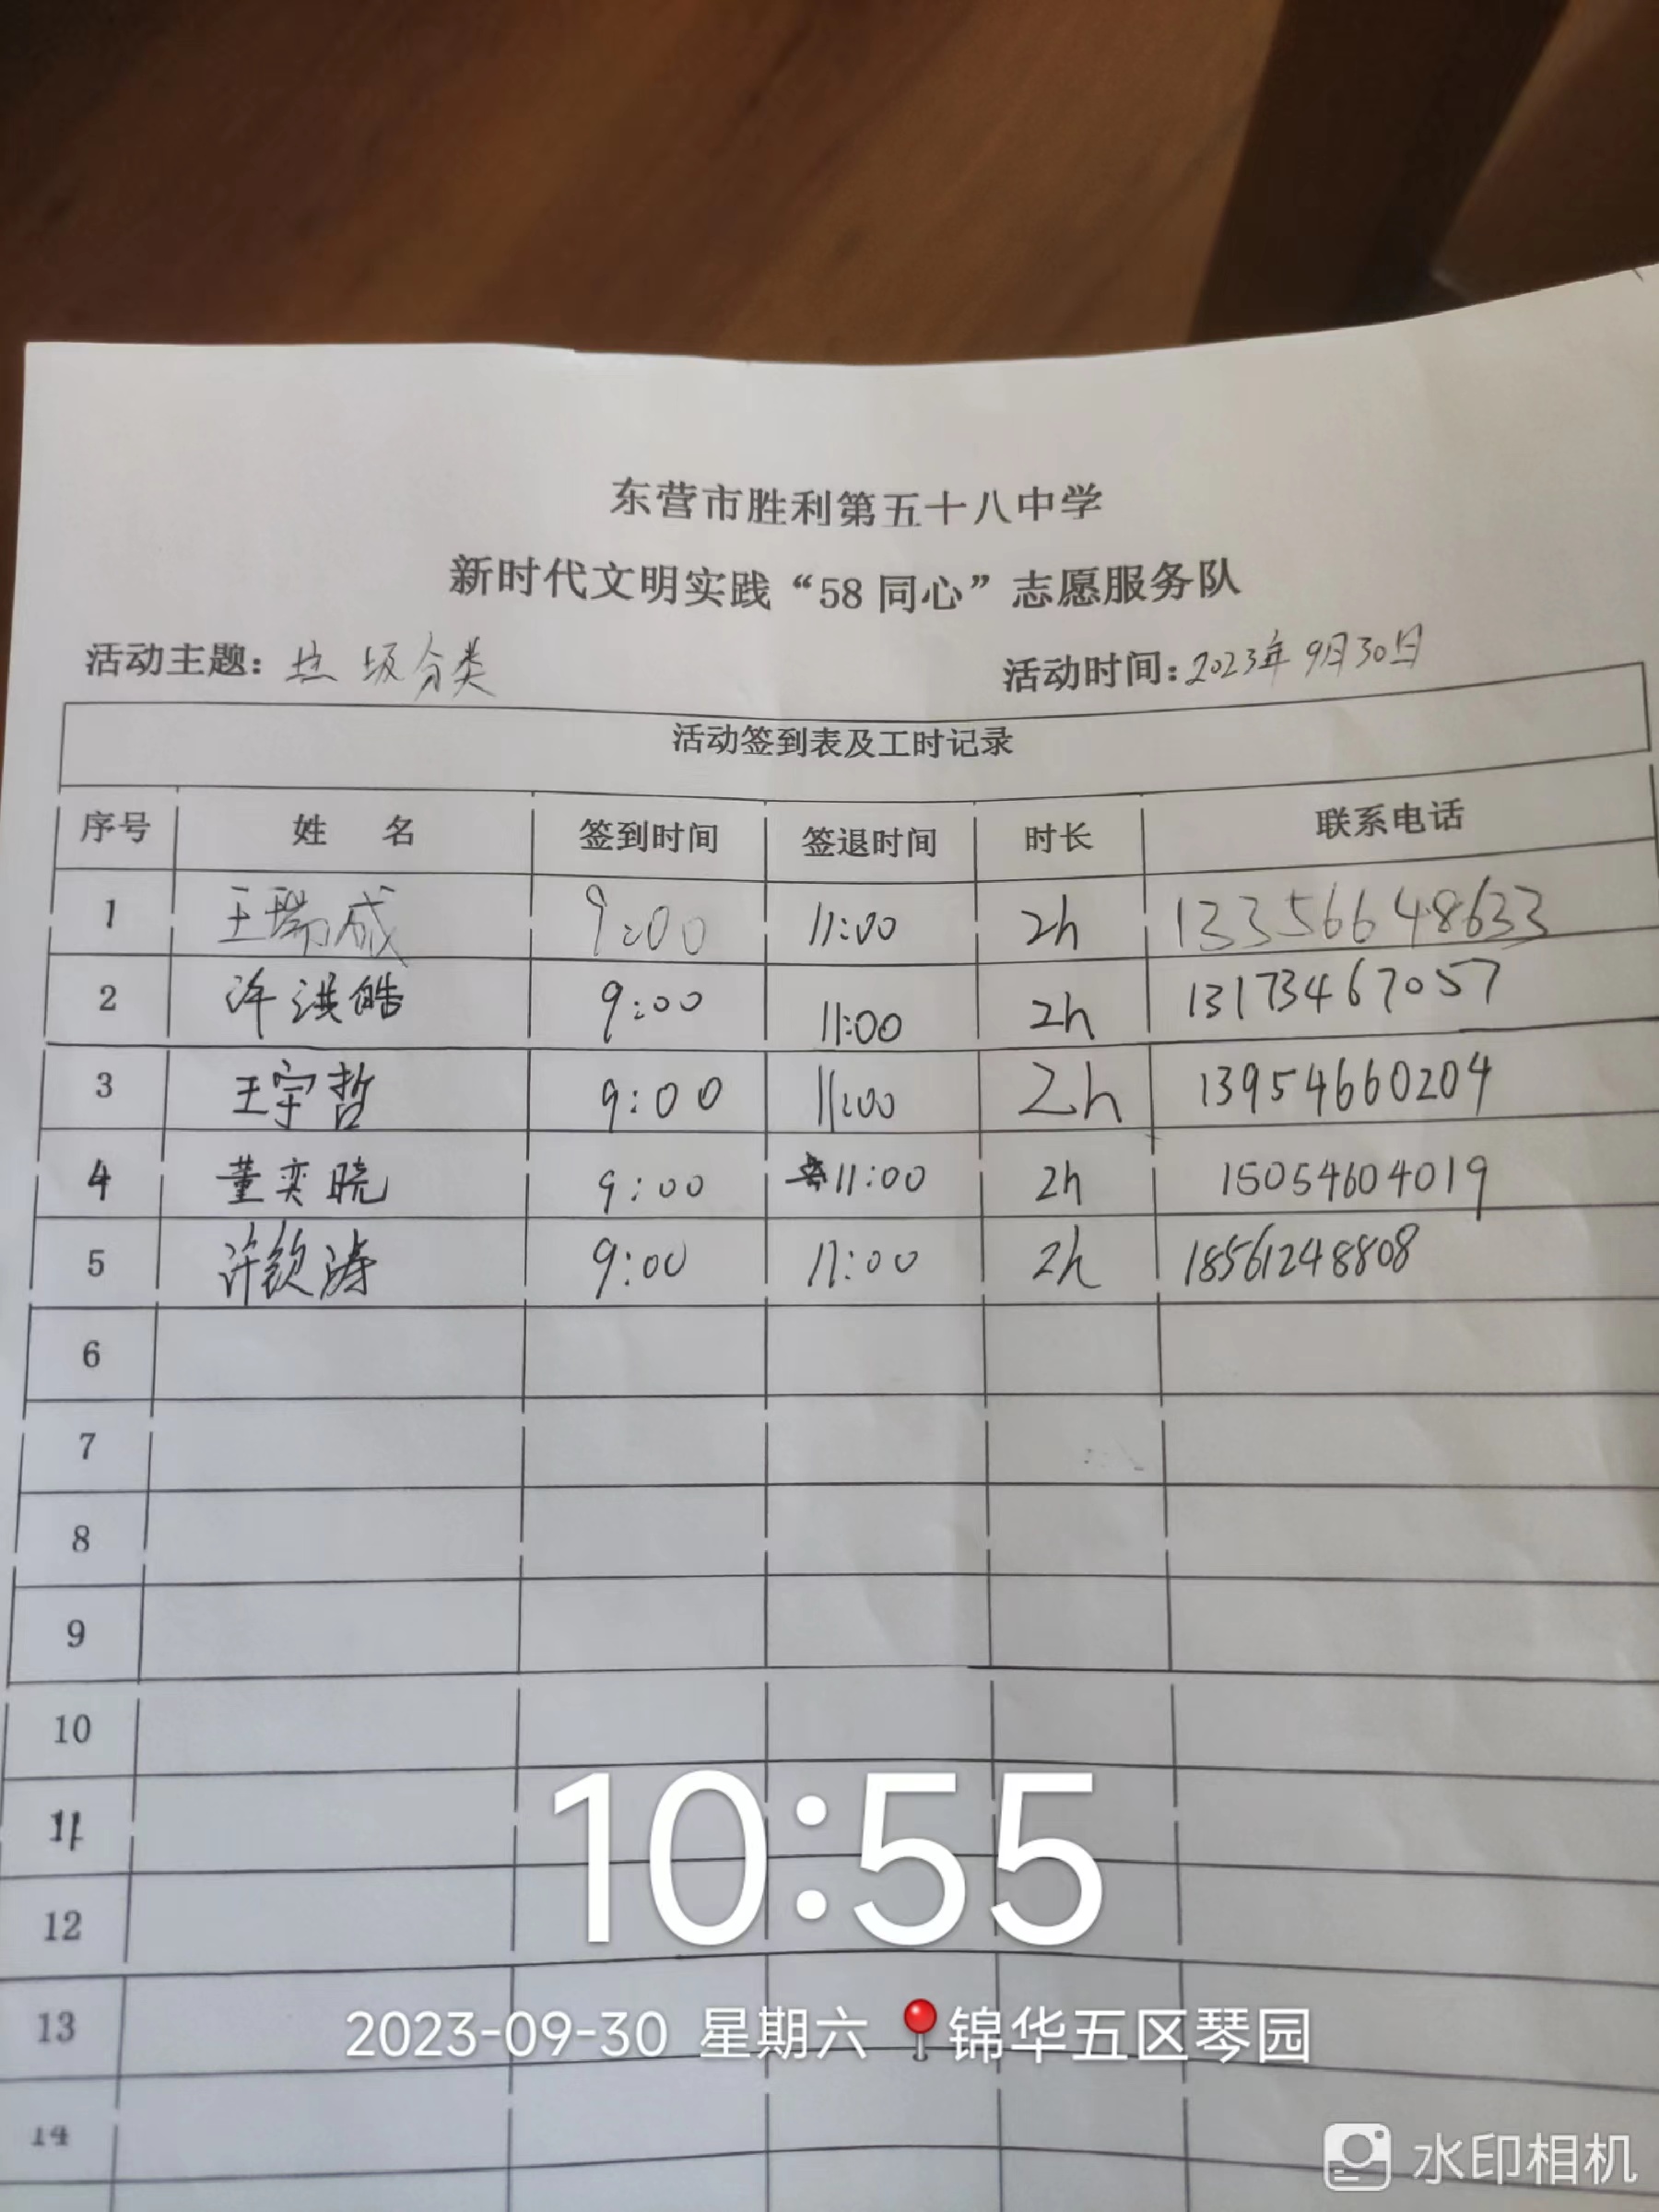 东营市胜利第五十八中学
新时代文明实践“58同心”志愿服务队
活动主题：垃圾分类 活动时间：2023年9月30日
活动签到表及工时记录
序号 姓 名 签到时间 签退时间 时长 联系电话
1 王瑞成 9:00 11:00 2h 13356648633
2 许淇皓 9:00 11:00 2h 13173467057
3 王宇哲 9:00 11:00 2h 13954660204
4 董奕晓 9:00 11:00 2h 15054604019
5 许钦涛 9:00 11:00 2h 18561248808
6
7
8
9
10
11
12
13
14
10:55
2023-09-30 星期六 锦华五区琴园
水印相机